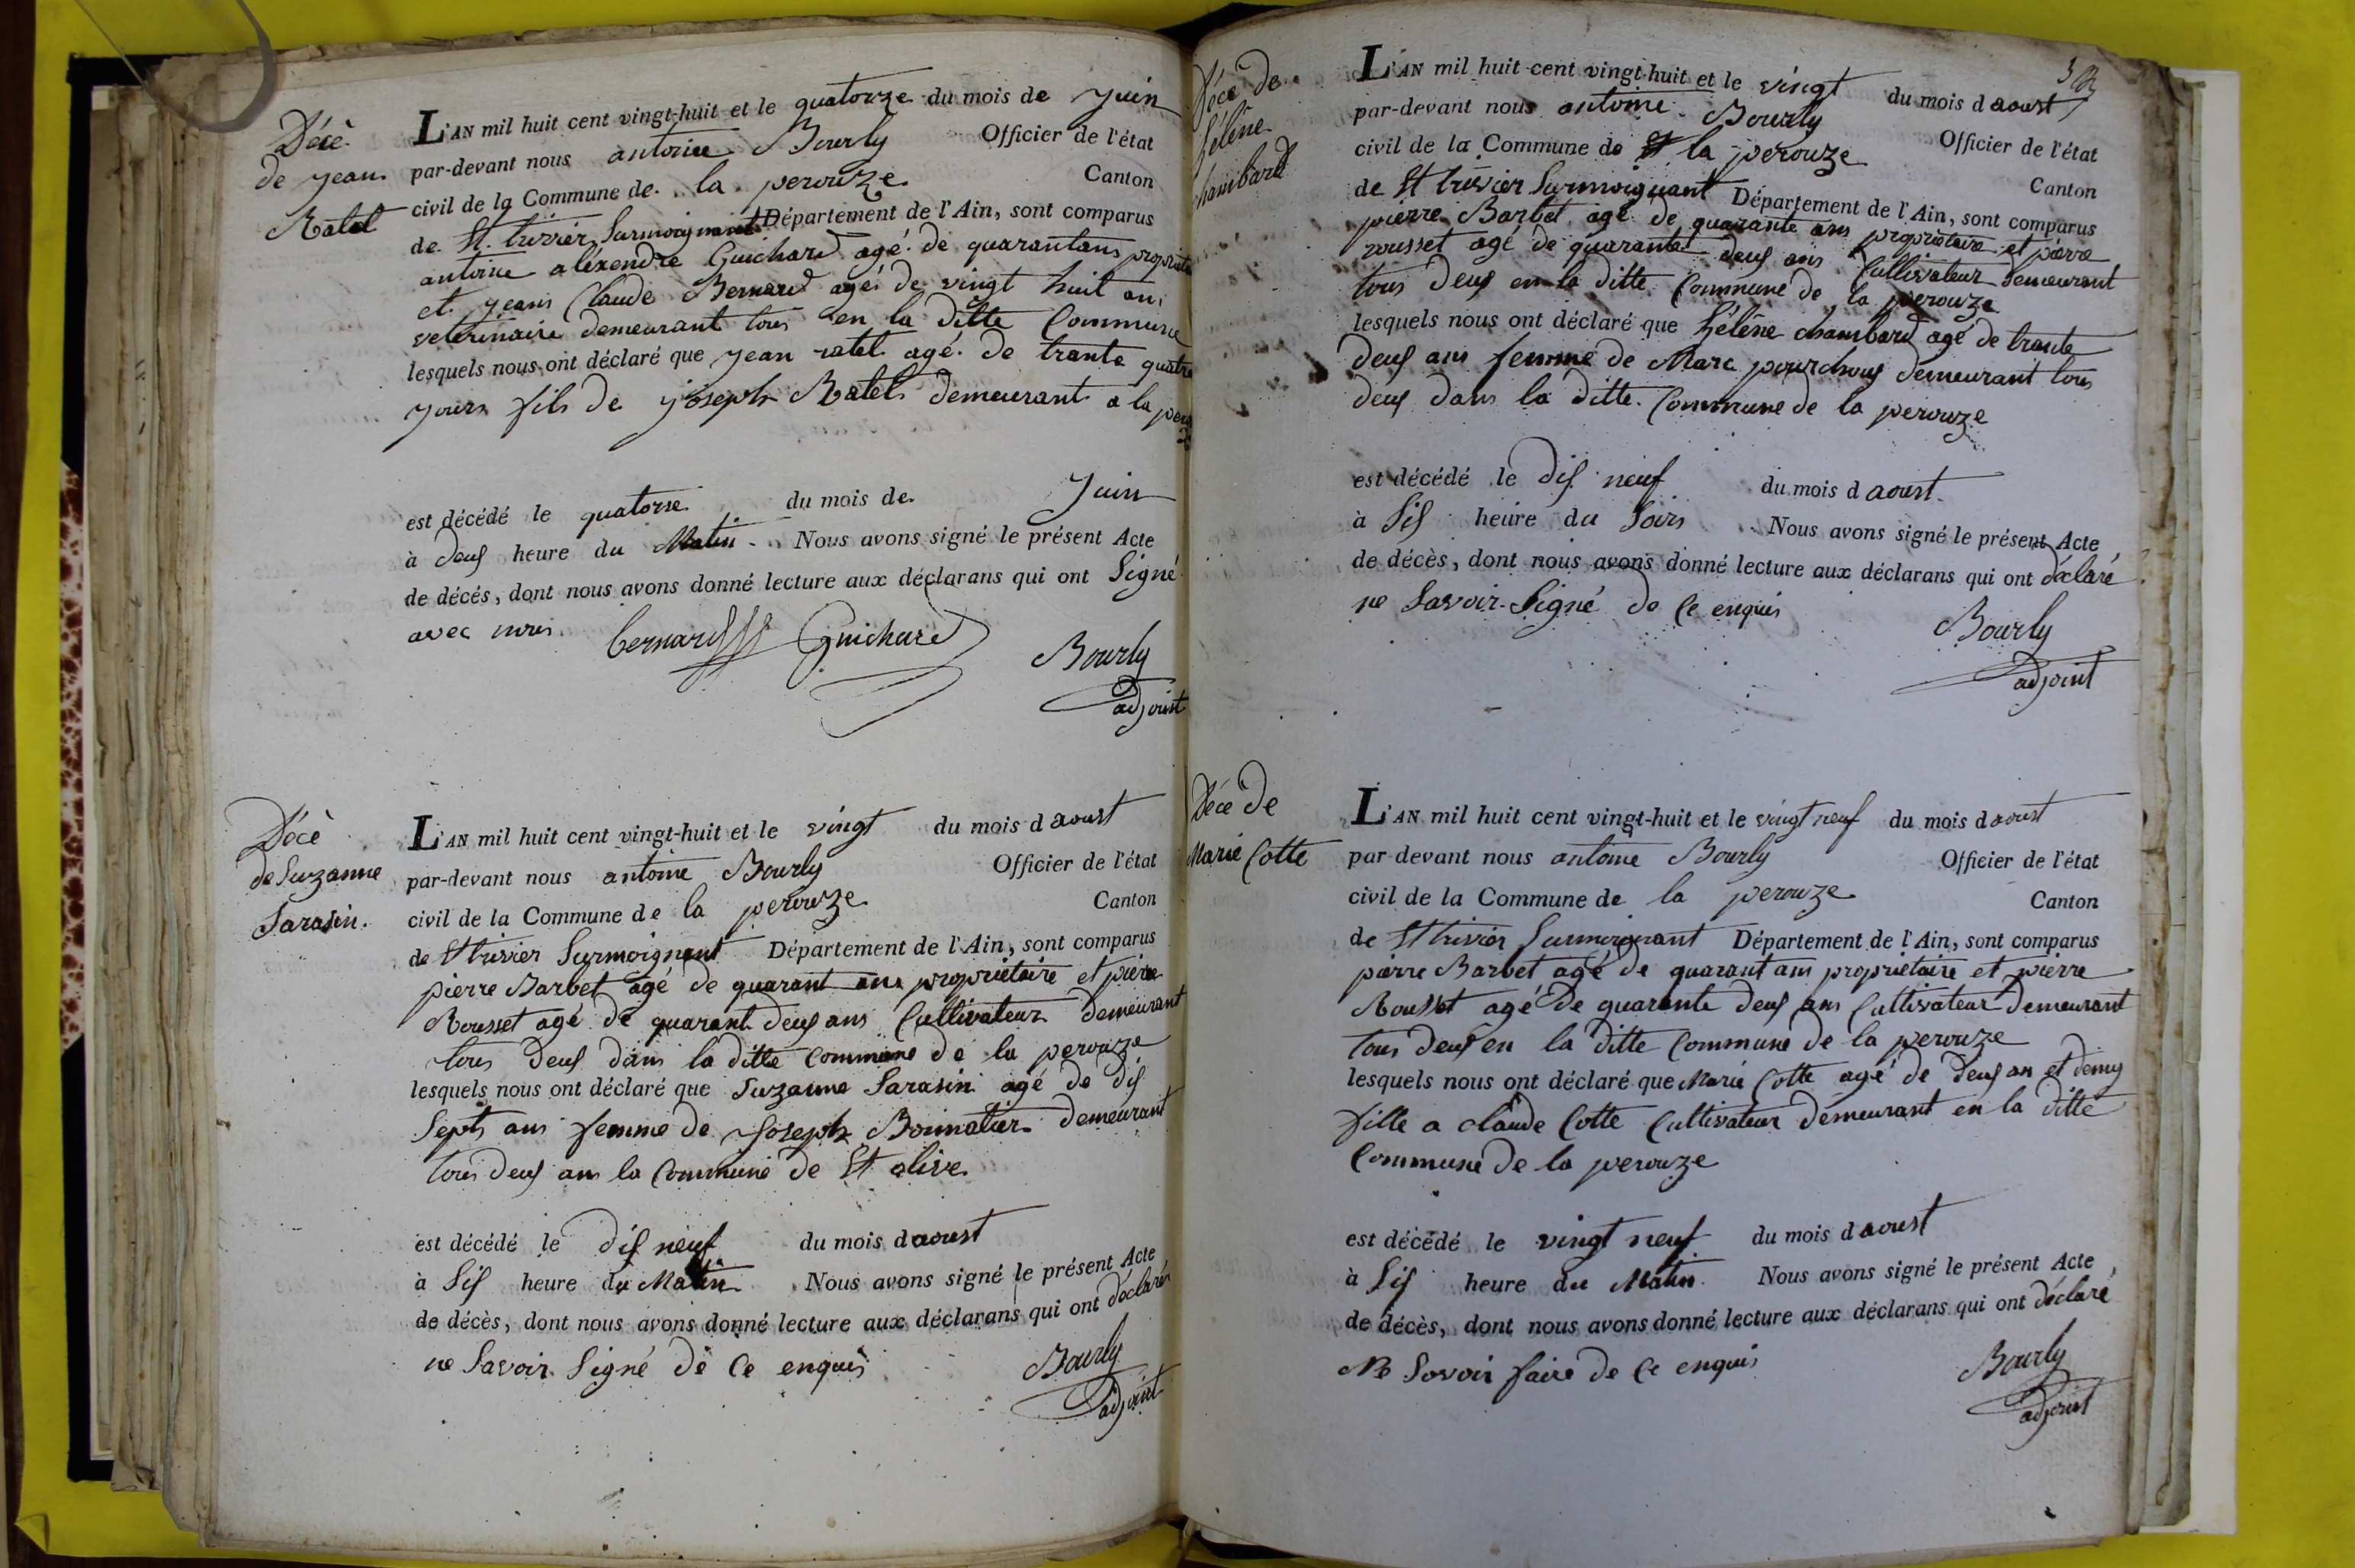 Décè
de jean
Ratel
L'AN mil huit cent vingt-huit et le quatorze du mois de juin
par-devant nous antoine Bourly Officier de l'état
civil de la Commune de la perouze Canton
de St. trivier Surmoignant Département de l'Ain, sont comparus
antoine aléxendre Guichard agé de quarantans
et jean Claude Bernard agé de vingt huit ans
veterinaire demeurant tous en la ditte Commune
lesquels nous ont déclaré que jean ratel agé de trante quatre
jours fils de joseph Ratel demeurant a la
est décédé le quatorse du mois de juin
à deuf heure du Matin Nous avons signé le présent Acte
de décés, dont nous avons donné lecture aux déclarans qui ont Signé
avec nous
bernard Guichard Bourly
adjoint
Décè
de Suzanne
Sarasin.
L'AN mil huit cent vingt-huit et le vingt du mois d aoust
par-devant nous antoine Bourly Officier de l'état
civil de la Commune de la perouze Canton
de St trivier Surmoignant Département de l'Ain, sont comparus
pierre Barbet agé de quarant ans propriétaire et pierre
Rousset agé de quarant deuf ans Cultivateur demeurant
tous deuf dans la ditte Commune de la perouze
lesquels nous ont déclaré que Suzanne Sarasin agé de dif
Sept ans femme de Joseph Bonnatier demeurant
tous deuf ans la Commune de St olive
est décédé le dif neuf du mois d aoust
à Sif heure du Matin Nous avons signé le présent Acte
de décès, dont nous avons donné lecture aux déclarans qui ont déclaré
ne Savoir Signé de Ce enquis
Bourly
adjoint
Décè de
hélène
chambard
L'AN mil huit cent vingt-huit et le vingt du mois d aoust
par-devant nous antoine Bourly Officier de l'état
civil de la Commune de St la perouze Canton
de St trivier Surmoignant Département de l'Ain, sont comparus
pierre Barbet agé de quarante ans propriétaire et pierre
rousset agé de quarante deuf ans Cultivateur demeurant
tous deuf en la ditte Commune de la perouze
lesquels nous ont déclaré que hélène chambard agé de trante
deuf ans femme de Marc pourchouf demeurant tous
deuf dans la ditte Commune de la perouze
est décédé le dif neuf du mois d aoust
à Sif heure du Soir Nous avons signé le présent Acte
de décès, dont nous avons donné lecture aux déclarans qui ont déclaré
ne Savoir Signé de Ce enquis
Bourly
adjoint
Décè de
Marie Cotte
L'AN mil huit cent vingt-huit et le vingt neuf du mois d aoust
par devant nous antoine Bourly Officier de l'état
civil de la Commune de la perouze Canton
de St trivier Surmoignant Département de l'Ain, sont comparus
pierre Barbet agé de quarant ans propriétaire et pierre
Rousset agé de quarante deuf ans Cultivateur demeurant
tous deuf en la ditte Commune de la perouze
lesquels nous ont déclaré que Marie Cotte agé de deuf an et demy
fille a claude Cotte Cultivateur demeurant en la ditte
Commune de la perouze
est décédé le vingt neuf du mois d aoust
à Sif heure du Matin Nous avons signé le présent Acte
de décès, dont nous avons donné lecture aux déclarans qui ont déclaré
Ne Sovoir faire de Ce enquis
Bourly
adjoint